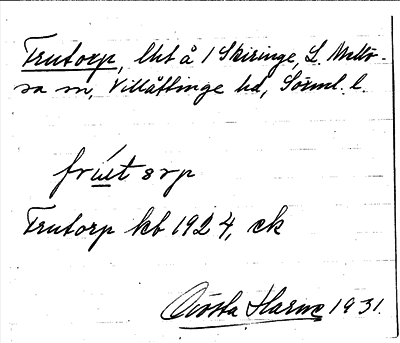 Frutorp, lht å 1 Skiringe, L. Mellö-
sa sn, Villåttinge hd, Sörml. l.
frútorp
Frutorp kb 1924, ek
Gösta Harne 1931.